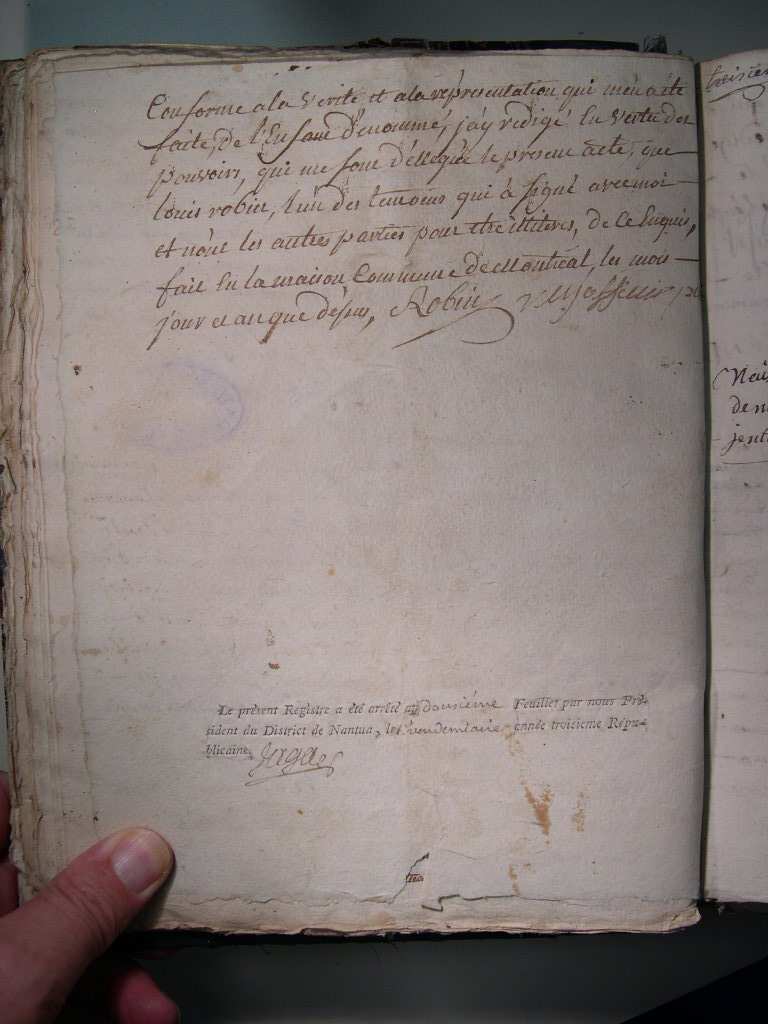 Conforme a la verité et a la representation qui men a été
faite, de l'Enfant d'enommé, j'ay redigé En vertu des
pouvoirs, qui me sont d'elleguée le present acte, que
louis robin, l'un des temoins qui à signé avec moi
et nônt les autres parties pour être illiteres, de ce Enquis,
fait En la maison Commune de Montréal, les mois
jour et an que dessus, Robin
troisiem
Nais
de n
jent
Le présent Régistre a été arrêté au dousiéme Feuillet par nous Pré-
sident du District de Nantua, le vendemiaire année troisieme Répu-
blicaine.